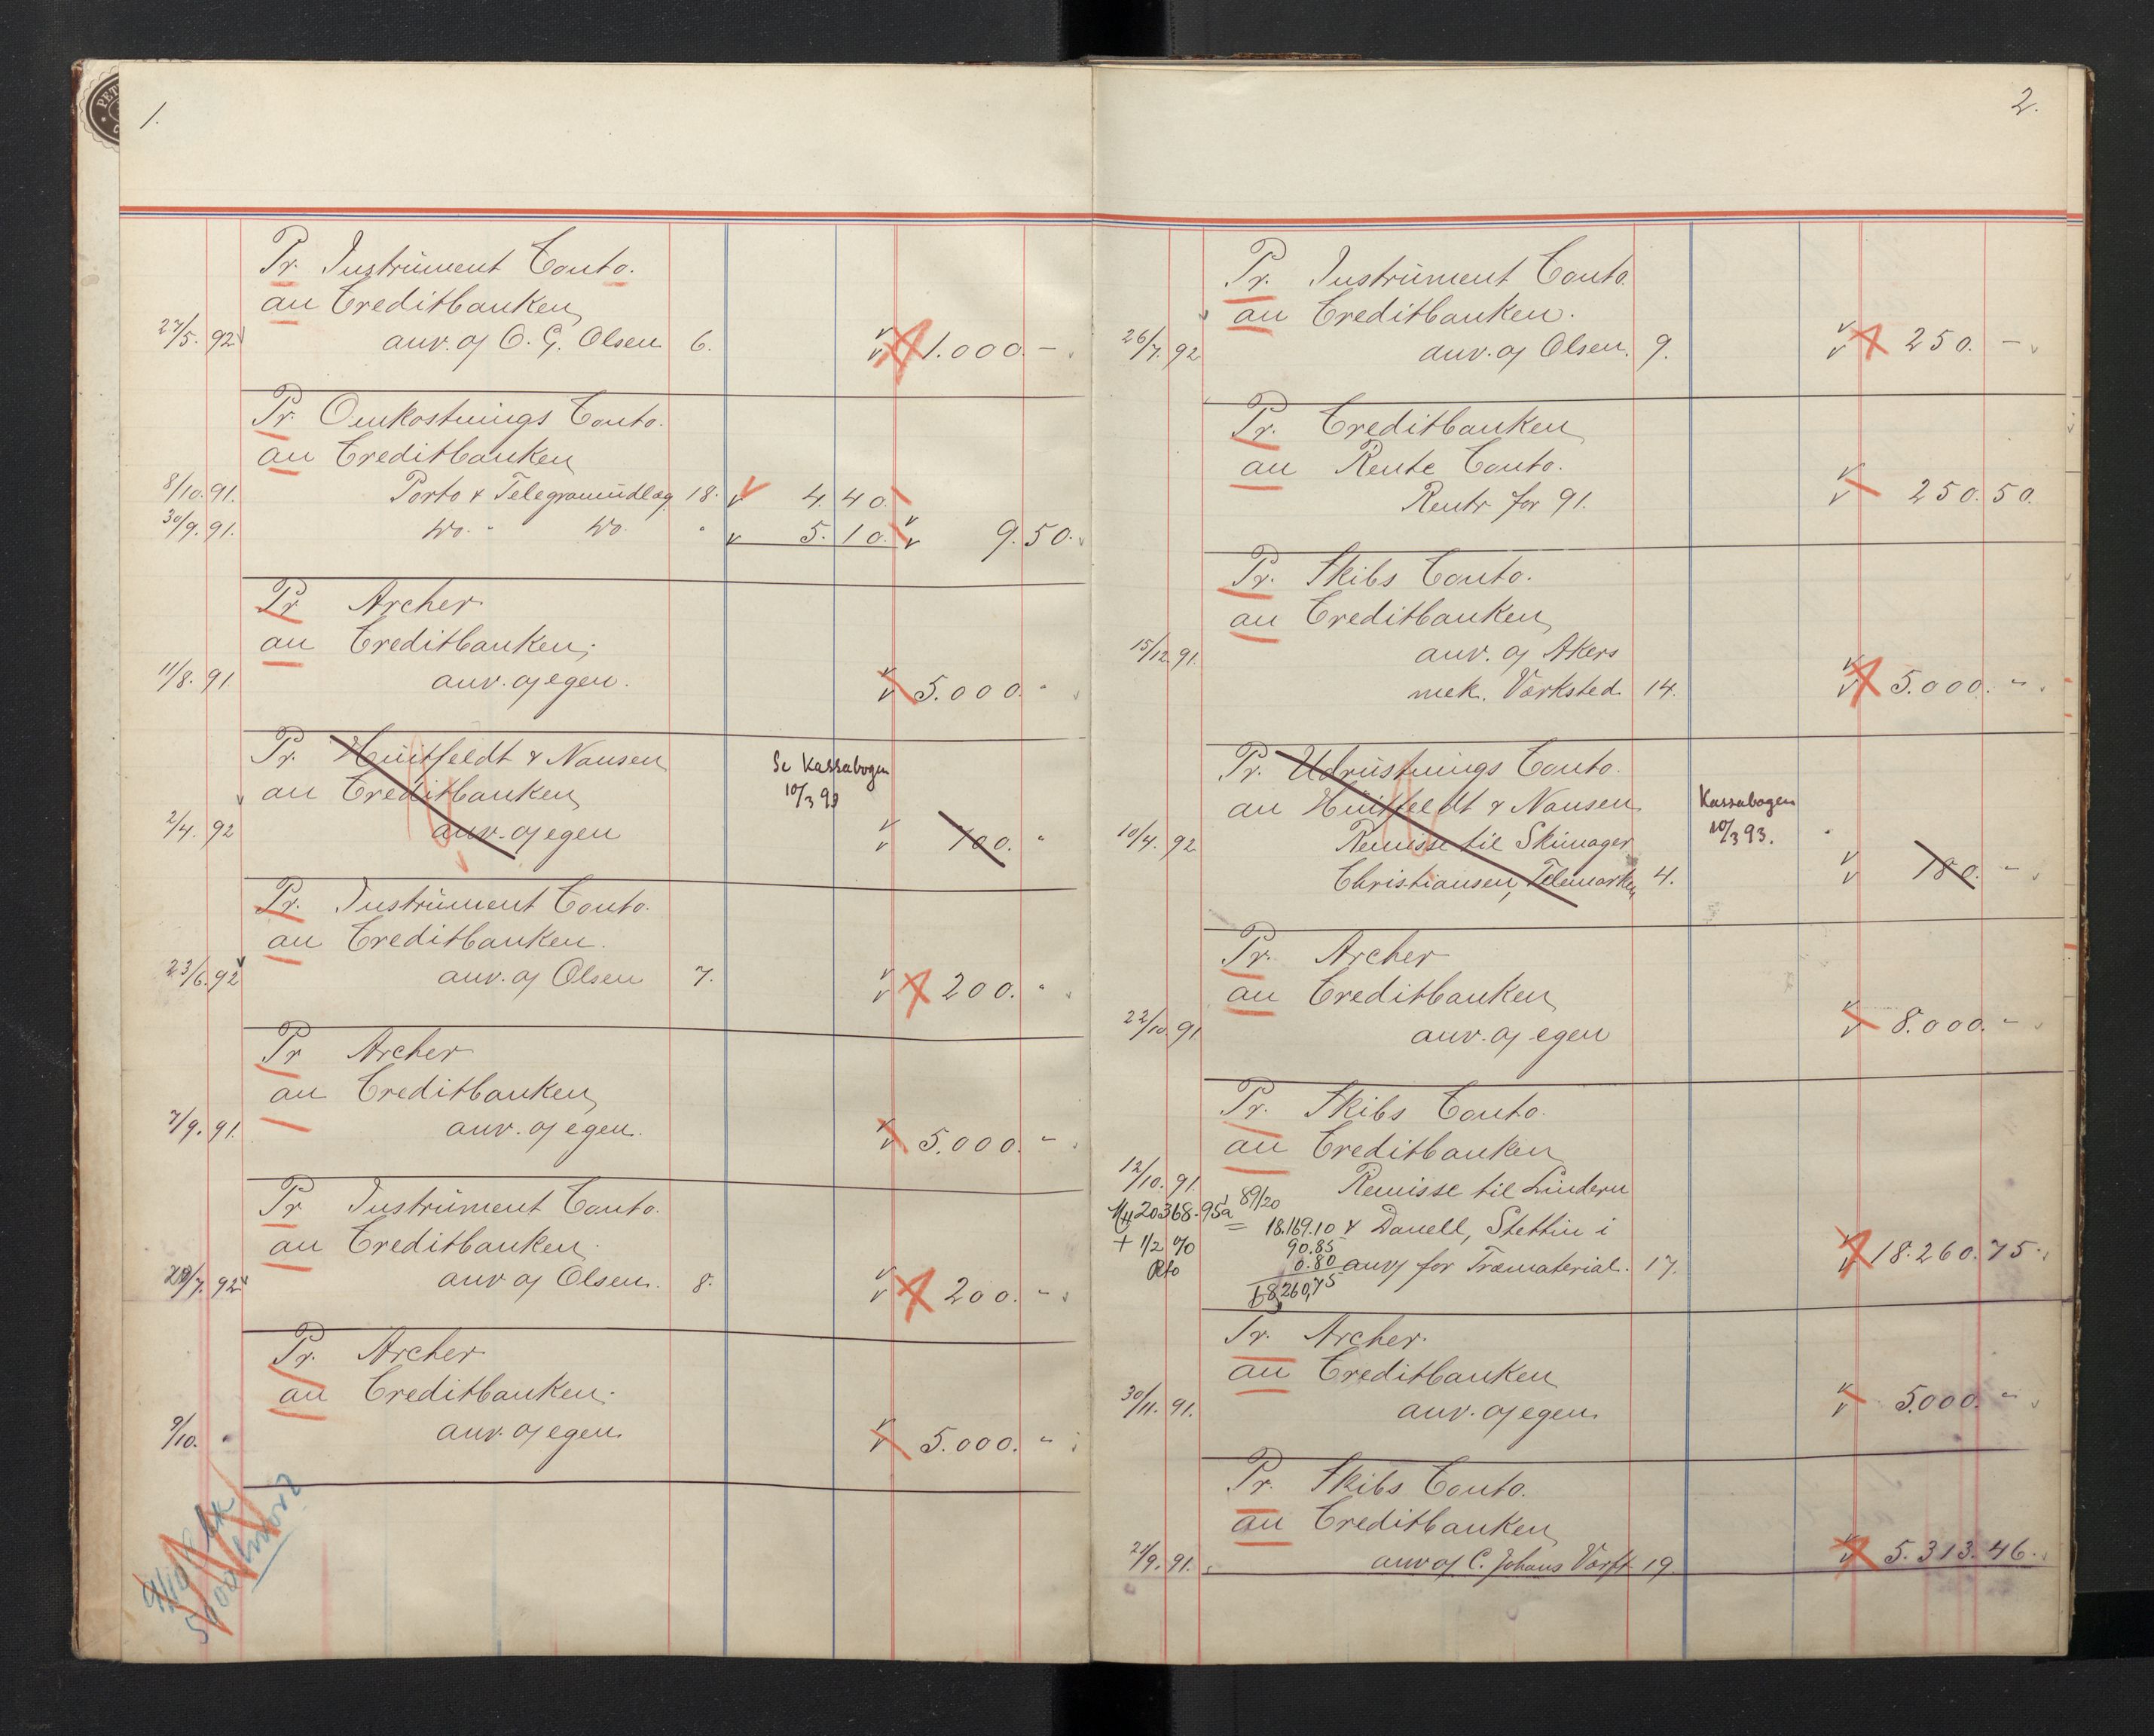 1.
Pr. Instrument Conto.
an Creditbanken
27/5. 92 anv. af O. G. Olsen 6. 1.000. -
Pr. Omkostnings Conto.
an Creditbanken
8/10. 91. Porto & Telegramudlæg 18. 4. 40.
30/9. 91. do. " do. " 5. 10. 9. 50.
Pr Archer.
an Creditbanken,
11/8. 91 anv. af egen. 5.000. "
Pr. Huitfeldt & Nansen
an Creditbanken
2/4. 92 anv. af egen 100. "
Se Kassabogen
10/3 93
Pr. Instrument Conto.
an Creditbanken.
23/6. 92 anv. af Olsen 7. 200. "
Pr Archer
an Creditbanken
7/9. 91. anv. af egen. 5.000. "
Pr Instrument Conto.
an Creditbanken.
/7. 92 anv af Olsen. 8. 200. "
Pr. Archer
an Creditbanken.
9/10. " anv. af egen. 5.000. "
5000 hvor?
2.
Pr. Instrument Conto.
an Creditbanken.
26/7. 92 anv. af Olsen. 9. 250. -
Pr. Creditbanken
an Rente Conto.
Rentr for 91. 250. 50.
Pr. Skibs Conto.
an Creditbanken
15/12. 91. anv. af Akers
mek. Værksted. 14. 5.000. "
Pr. Udrustnings Conto.
an Huitfeldt & Nansen
10/4. 92 Remisse til Skimager
Christiansen, Telemarken 4. 180. "
Kassabogen
10/3 93.
Pr. Archer
an Creditbanken
22/10. 91 anv. af egen 8.000. "
Pr. Skibs Conto.
an Creditbanken
12/10. 91. Remisse til Lindern
20368.95 à 89/20
= 18.169.10 & Danell, Stettin i
+ 1/2 % 90.85
Pto 0.80 anv for Træmaterial. 17. 18.260. 75.
18,260,75
Pr. Archer.
an Creditbanken
30/11. 91. anv. af egen. 5.000. "
Pr. Skibs Conto.
an Creditbanken
21/9. 91. anv af C. Johans Værft 19. 5.313. 46.